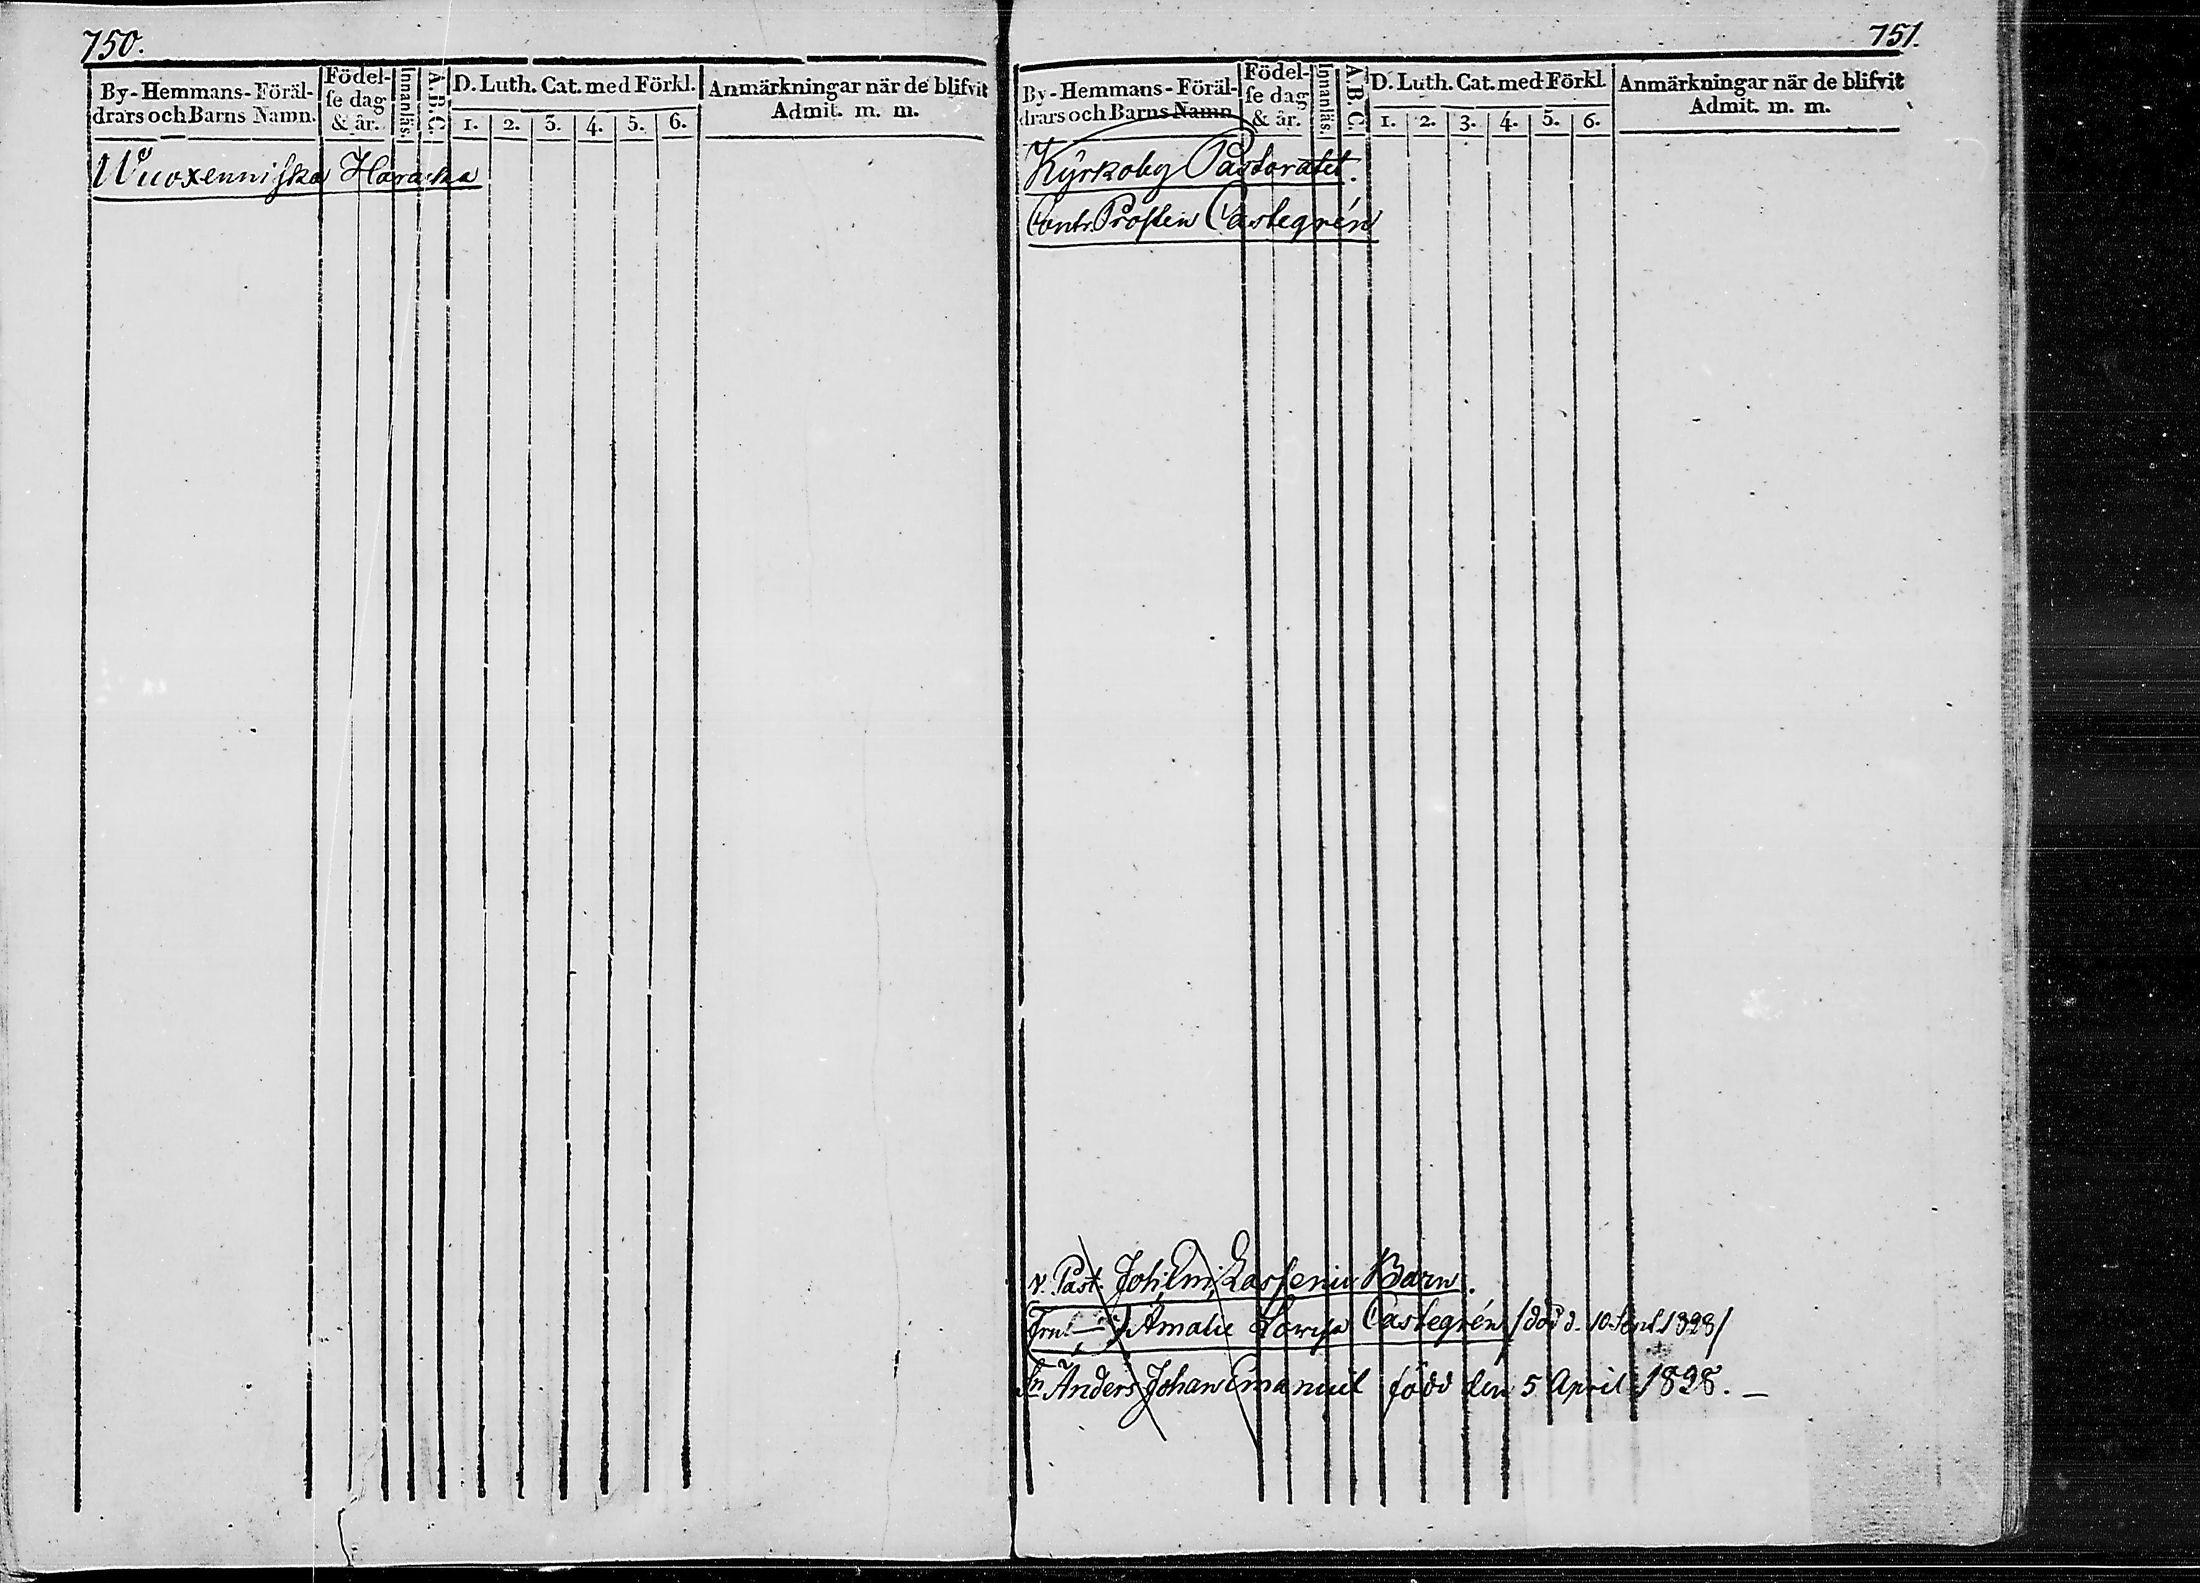 750.
By-Hemmans-Föräl-
drars och Barns Namn.
Födel-
se dag
& år.
Innanläs.
A.B.C.
D. Luth. Cat. med Förkl.
1. 2. 3. 4. 5. 6.
Anmärkningar när de blifvit
Admit. m. m.
Wuoxenniska Haracka
751.
By-Hemmans-Föräl-
drars och Barns Namn
Födel-
se dag
& år.
Innanläs.
A.B.C.
D. Luth. Cat. med Förkl.
1. 2. 3. 4. 5. 6.
Anmärkningar när de blifvit
Admit. m. m.
Kyrkoby Pastoratet.
Contr. Prosten Castegrén
v. Past. Joh. Em. Barn.
Amalie Lovisa Castegrén /död d. 10 1828/
Sn Anders Johan Emanuel född den 5 April 1828. —